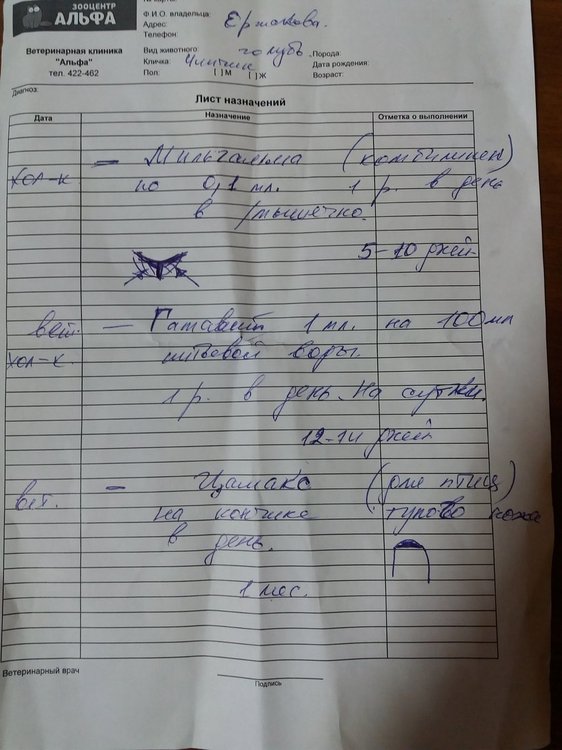 № карты:
ЗООЦЕНТР
АЛЬФА
Ветеринарная клиника
"Альфа"
тел. 422-462
Ф.И.О. владельца: Ермакова.
Адрес:
Телефон:
Вид животного: голубь Порода:
Кличка: Дата рождения:
Пол: [ ] М [ ] Ж Возраст:
Диагноз:
Лист назначений
Дата Назначение Отметка о выполнении
— Мильгамма (комбилипен)
хол-к по 0,1 мл. 1 р. в день
в /мышечно.
5-10 дней
вет. — Гамавит 1 мл. на 100мл
хол-к питьевой воды.
1 р. в день. на сутки.
12-14 дней
вет. — Цамакс (для птиц)
на кончике тупого ножа
в день.
1 мес.
Ветеринарный врач
Подпись